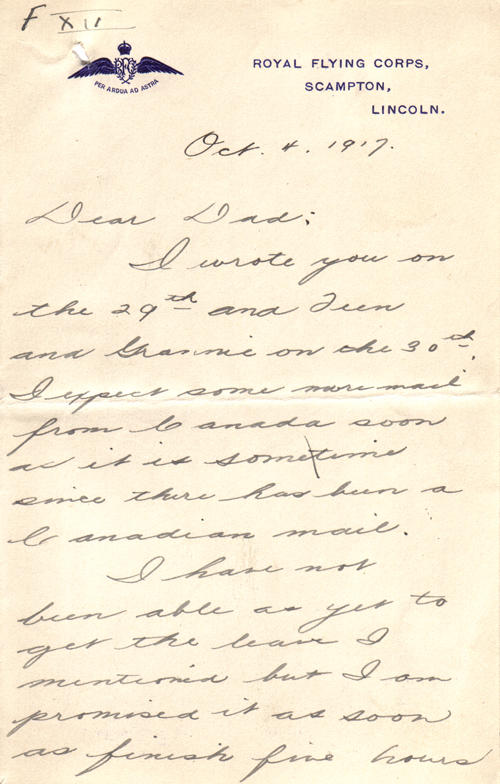 F XII
RFC
PER ARDUA AD ASTRA
ROYAL FLYING CORPS,
SCAMPTON,
LINCOLN.
Oct. 4. 1917.
Dear Dad;
I wrote you on
the 29th and Teen
and Grannie on the 30th.
I expect some more mail
from Canada soon
as it is sometime
since there has been a
Canadian mail.
I have not
been able as yet to
get the leave I
mentioned but I am
promised it as soon
as finish five hours